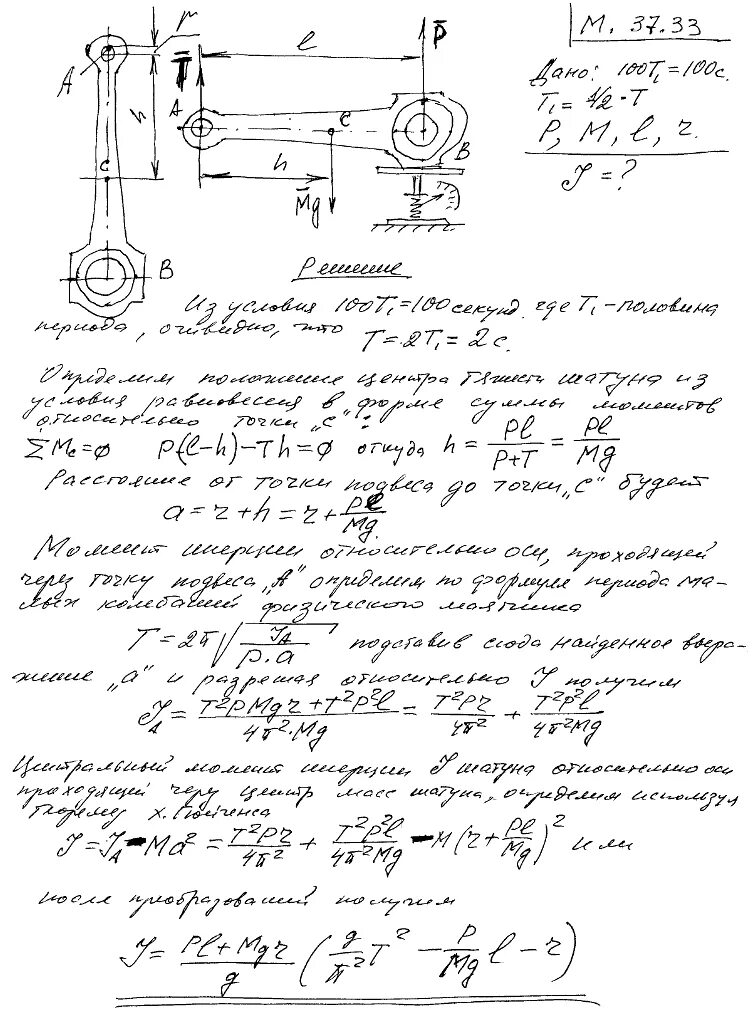 М. 37.33
Дано: 100T₁=100с.
T₁= 1/2·T
P, M, l, r.
J = ?
r
A
h
C
B
l
P̄
T̄
A
C
h
M̄g
B
Решение
Из условия 100T₁=100секунд где T₁-половина
периода, очевидно, что T=2T₁=2с.
Определим положение центра тяжести шатуна из
условия равновесия в форме суммы моментов
относительно точки „С":
ΣMc=0 P(l-h)-Th=0 откуда h = Pl/(P+T) = Pl/Mg
Расстояние от точки подвеса до точки „С" будет
a=r+h=r+Pl/Mg.
Момент инерции относительно оси, проходящей
через точку подвеса „А" определим по формуле периода ма-
лых колебаний физического маятника
T=2π√(J_A/(P·a)) подставив сюда найденное выра-
жение „а" и разрешая относительно J получим
J_A = (T²PMgr+T²P²l)/(4π²·Mg) = T²Pr/4π² + T²P²l/4π²Mg
Центральный момент инерции J шатуна относительно оси
проходящей через центр масс шатуна, определим используя
теорему Х. Гюйгенса
J=J_A-Ma²= T²Pr/4π² + T²P²l/4π²Mg -M(r+Pl/Mg)² или
после преобразований получим
J= (Pl+Mgr)/g (g/π² T² - P/Mg l - r)